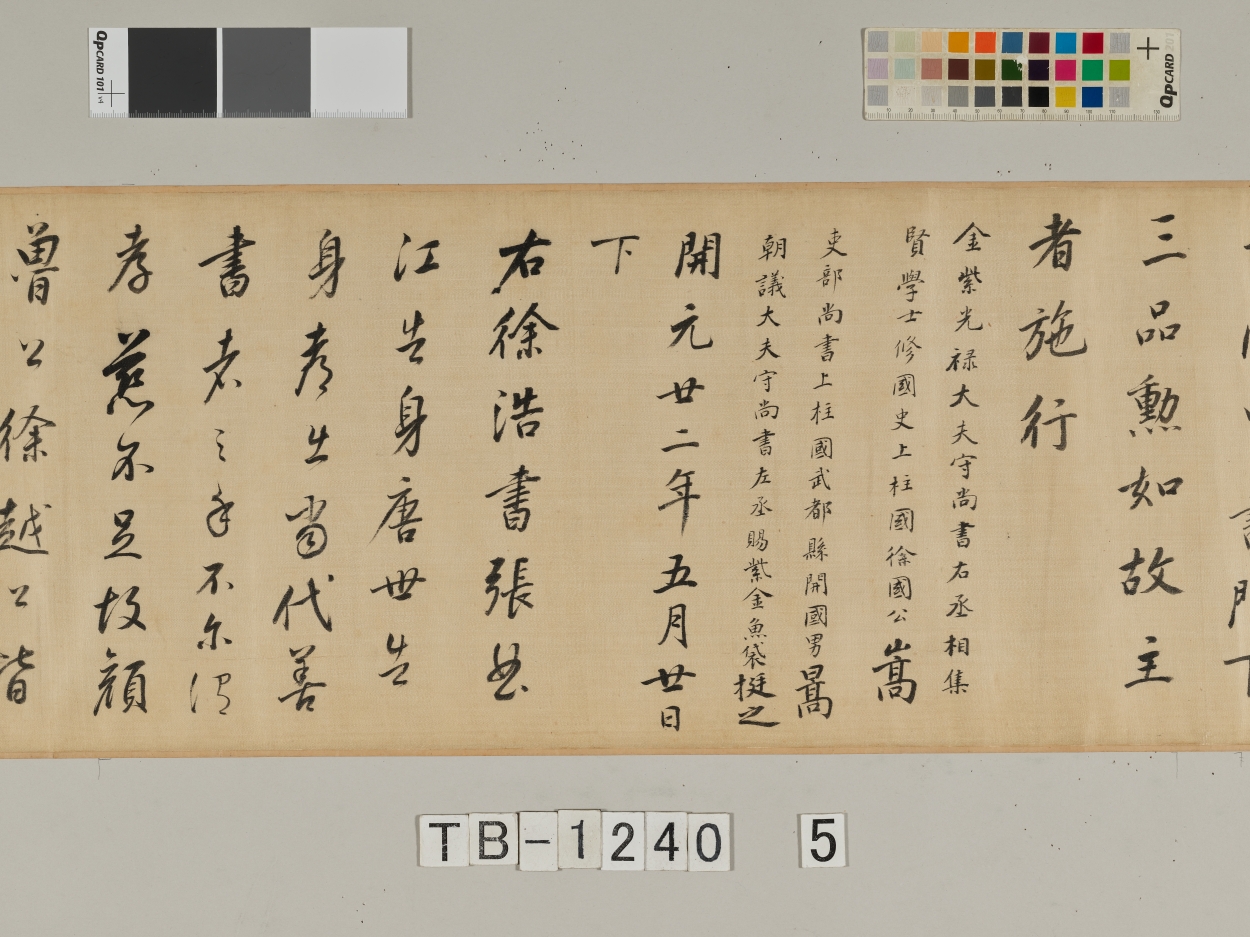 三品勲如故主
者施行
金紫光禄大夫守尚書右丞相集
賢學士修國史上柱國徐國公嵩
吏部尚書上柱國武都縣開國男暠
朝議大夫守尚書左丞賜紫金魚袋挺之
開元廿二年五月廿日
下
右徐浩書張曲
江告身唐世告
身考出當代善
書者之手不尔
孝慈不足故顔
魯公徐越公皆
QPCARD 101 v4
QPCARD 201
TB-1240 5